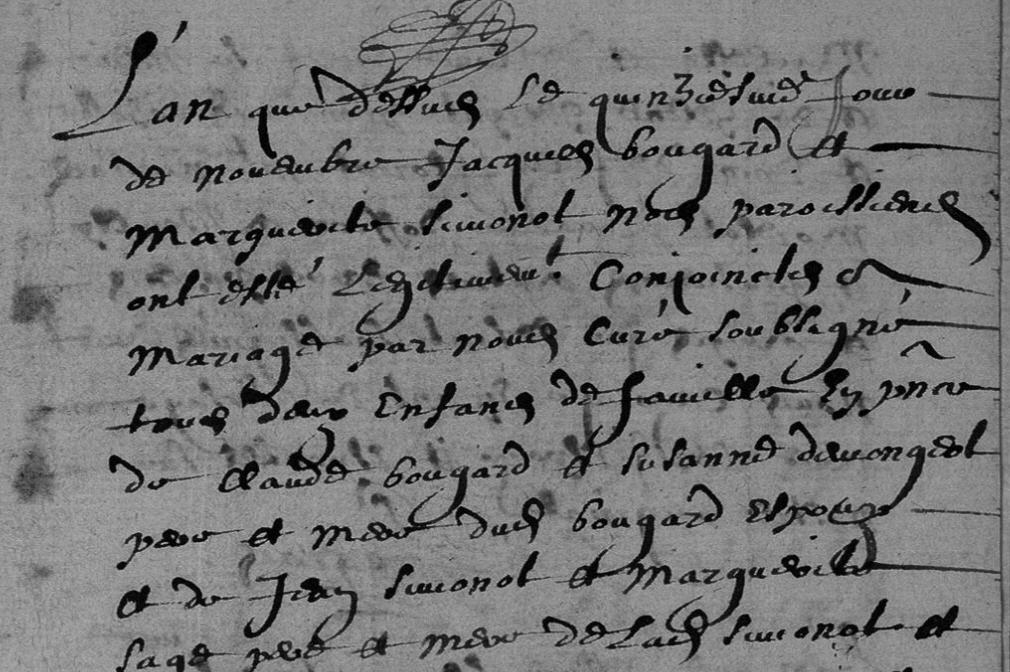 L'an que dessus le quinziesme Jour
de novembre Jacques bougard et
Marguerite simonot nos paroissiens
ont esté Legitimem.t Conjoinctes e
Mariage par nous Curé soubsigné
tous deux Enfans de famille En pnce
de Claude bougard et susanne demongeot
pere et mere dud bougard Espoux
et de Jean simonot et Marguerite
sage pere et mere de lad simonot et